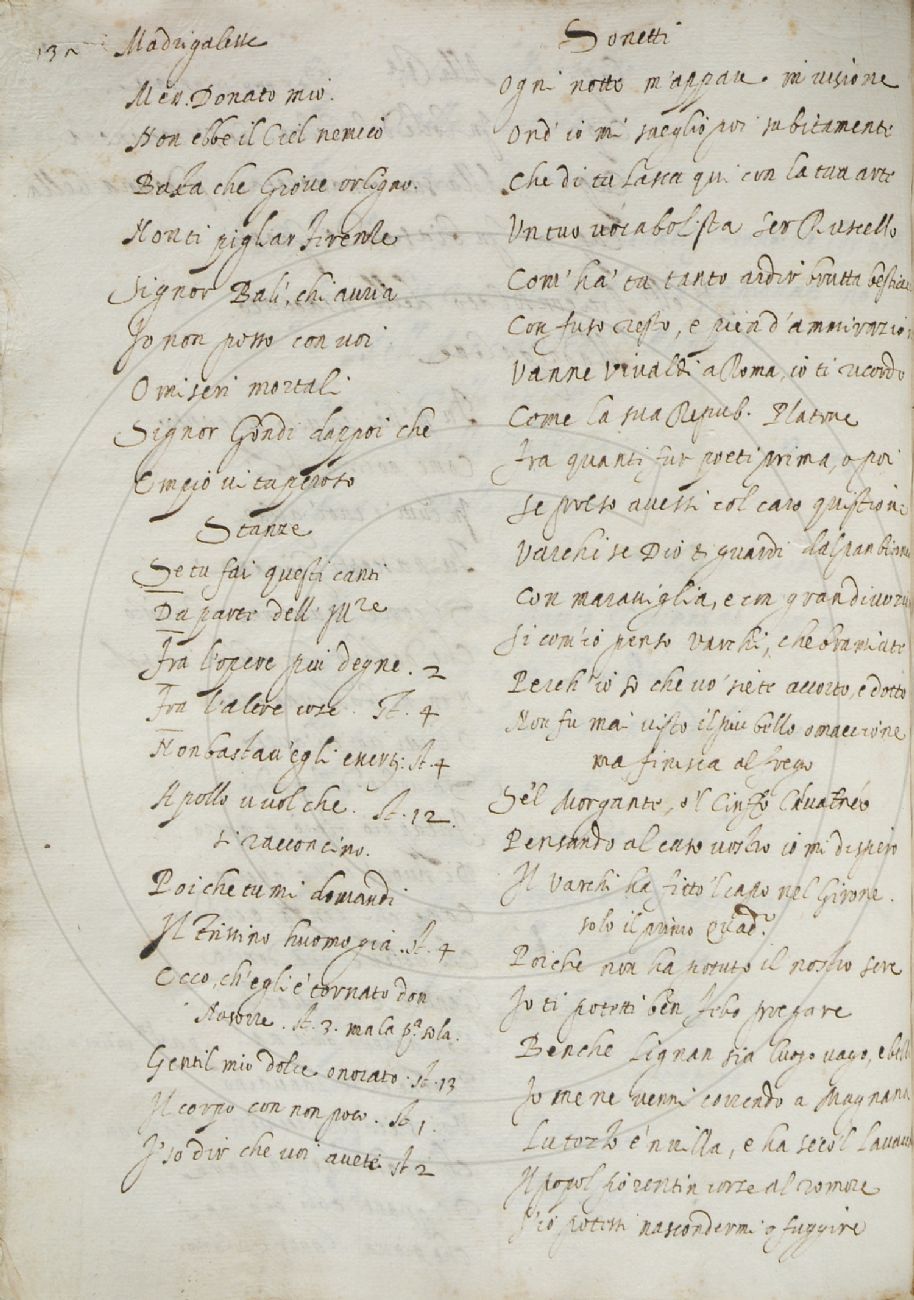 Madrigalesse
Mes. Donato mio.
Non ebbe il Ciel nemico
Baja che Giove
Non ti pigliar Firenze
Signor Balì, chi auria
Io non posso con voi
O miseri mortali
Signor Gondi dappoi che
Empio vituperoso
Stanze
Se tu fai questi canti
Da parte dell' Ill.re
Fra l'opere piu degne. 2
Fra l'altre cose. St. 4
Non bastav'egli St. 4
Apollo vuol che. St. 12.
si racconcino.
Poiche tu mi domandi
Il Trissino huomo già. St. 4
Ecco, ch'egli è tornato don
St. 3. ma la p.a sola.
Gentil mio dolce onorato. St. 13
Il corpo con non poco. St. 1
I' so dir che voi avete St. 2
Sonetti
Ogni notte m'appare in visione
Ond' io mi sveglio poi subitamente
Che di tu Lasca qui con la tua arte
Un tuo vocabolista Ser Ruscello
Com' ha' tu tanto ardir brutta bestia
Confuso resto, e pien d'ammirazio
Vanne Vivaldi a Roma, io ti ricordo
Come la sua Repub. Platone
Fra quanti fur poeti prima, o poi
Se preso avessi col caro quistione
Varchi se Dio ti guardi
Con maraviglia, e con grand
Si com'io penso Varchi, che bramiate
Perch' io so che vo' siete accorto, e dotto
Non fu mai visto il piu bello omaccione
ma finisca al frego
S'el Morgante, e'l Ciriffo Calvaneo
Pensando al caso vostro io mi dispero
Il Varchi ha fitto 'l capo nel Girone.
solo il primo Quad.o
Poiche non ha potuto il nostro sere
Io ti potetti ben Febo pregare
Benche Lignan sia luogo vago, e bell
Io me ne venni correndo a Magnan
Lutozo è 'n villa, e ha seco 'l
Il popol fiorentin corse al romore
S'io potessi nascondermi o fuggire